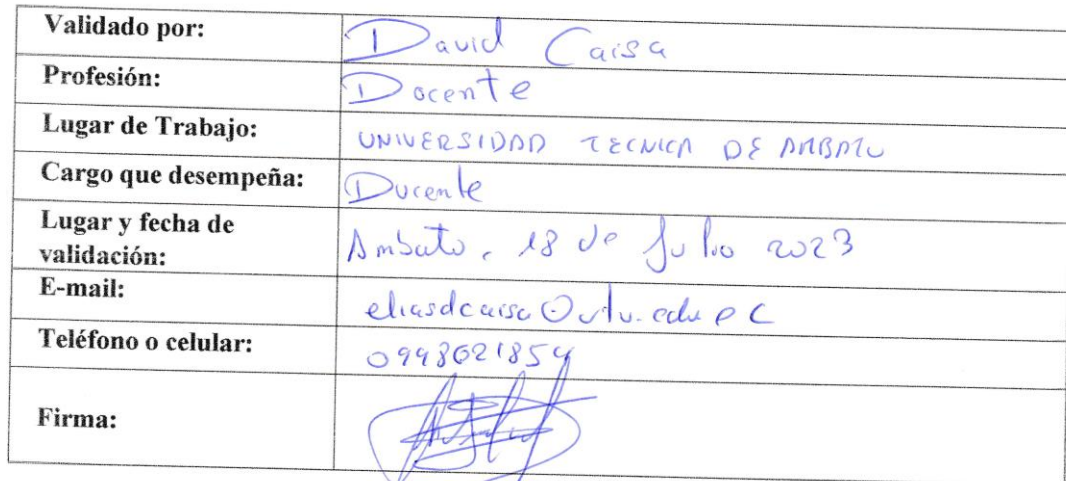 Validado por: David Caisa
Profesión: Docente
Lugar de Trabajo: UNIVERSIDAD TECNICA DE AMBATO
Cargo que desempeña: Docente
Lugar y fecha de
validación: Ambato, 18 de Julio 2023
E-mail: eliasdcaisa@uta.edu.ec
Teléfono o celular: 0998621854
Firma: